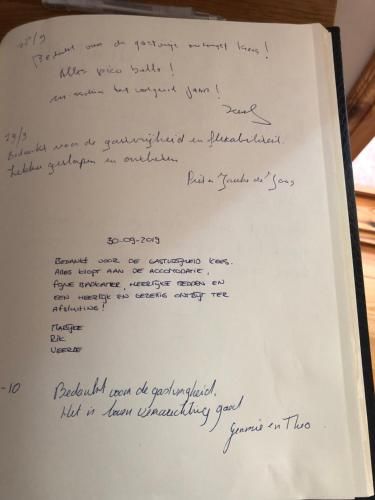 28/9
Bedankt voor de gastvrije ontvangst Kees!
Alles pico bello!
en wellicht tot volgend jaar!
29/9
Bedankt voor de gastvrijheid en flexibiliteit.
Lekker geslapen en ontbeten
Piet en de Jong
30-09-2019
BEDANKT VOOR DE GASTVRIJHEID KEES.
ALLES KLOPT AAN DE ACCOMODATIE,
FIJNE BADKAMER, HEERLIJKE BEDDEN EN
EEN HEERLIJK EN GEZELLIG ONTBIJT TER
AFSLUITING!
MARIJKE
RIK
VEERLE
-10
Bedankt voor de gastvrijheid.
Het is boven verwachting goed
Gemmie en Theo